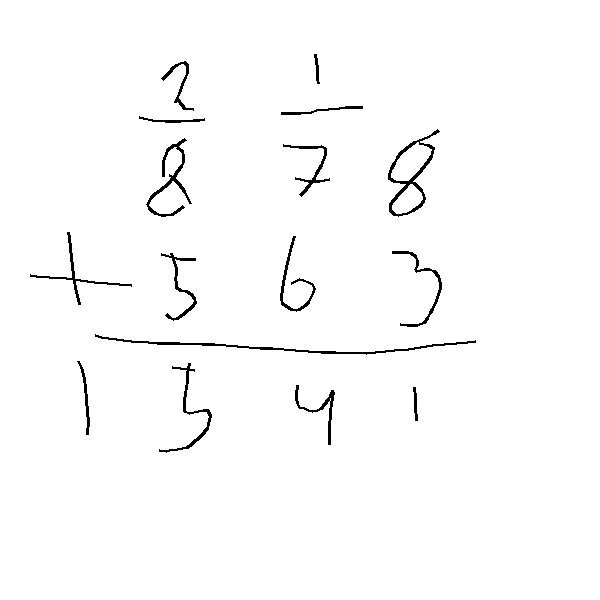 2 1
8 7 8
+ 5 6 3
1 5 4 1